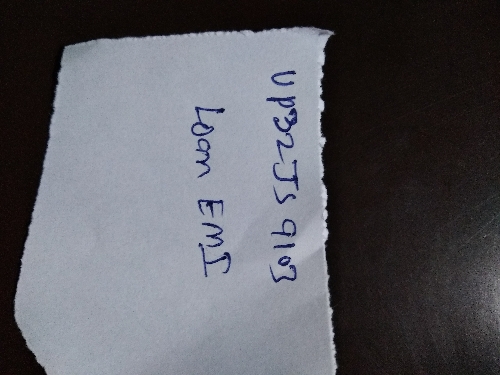 UP32JS9103
Loan EMI